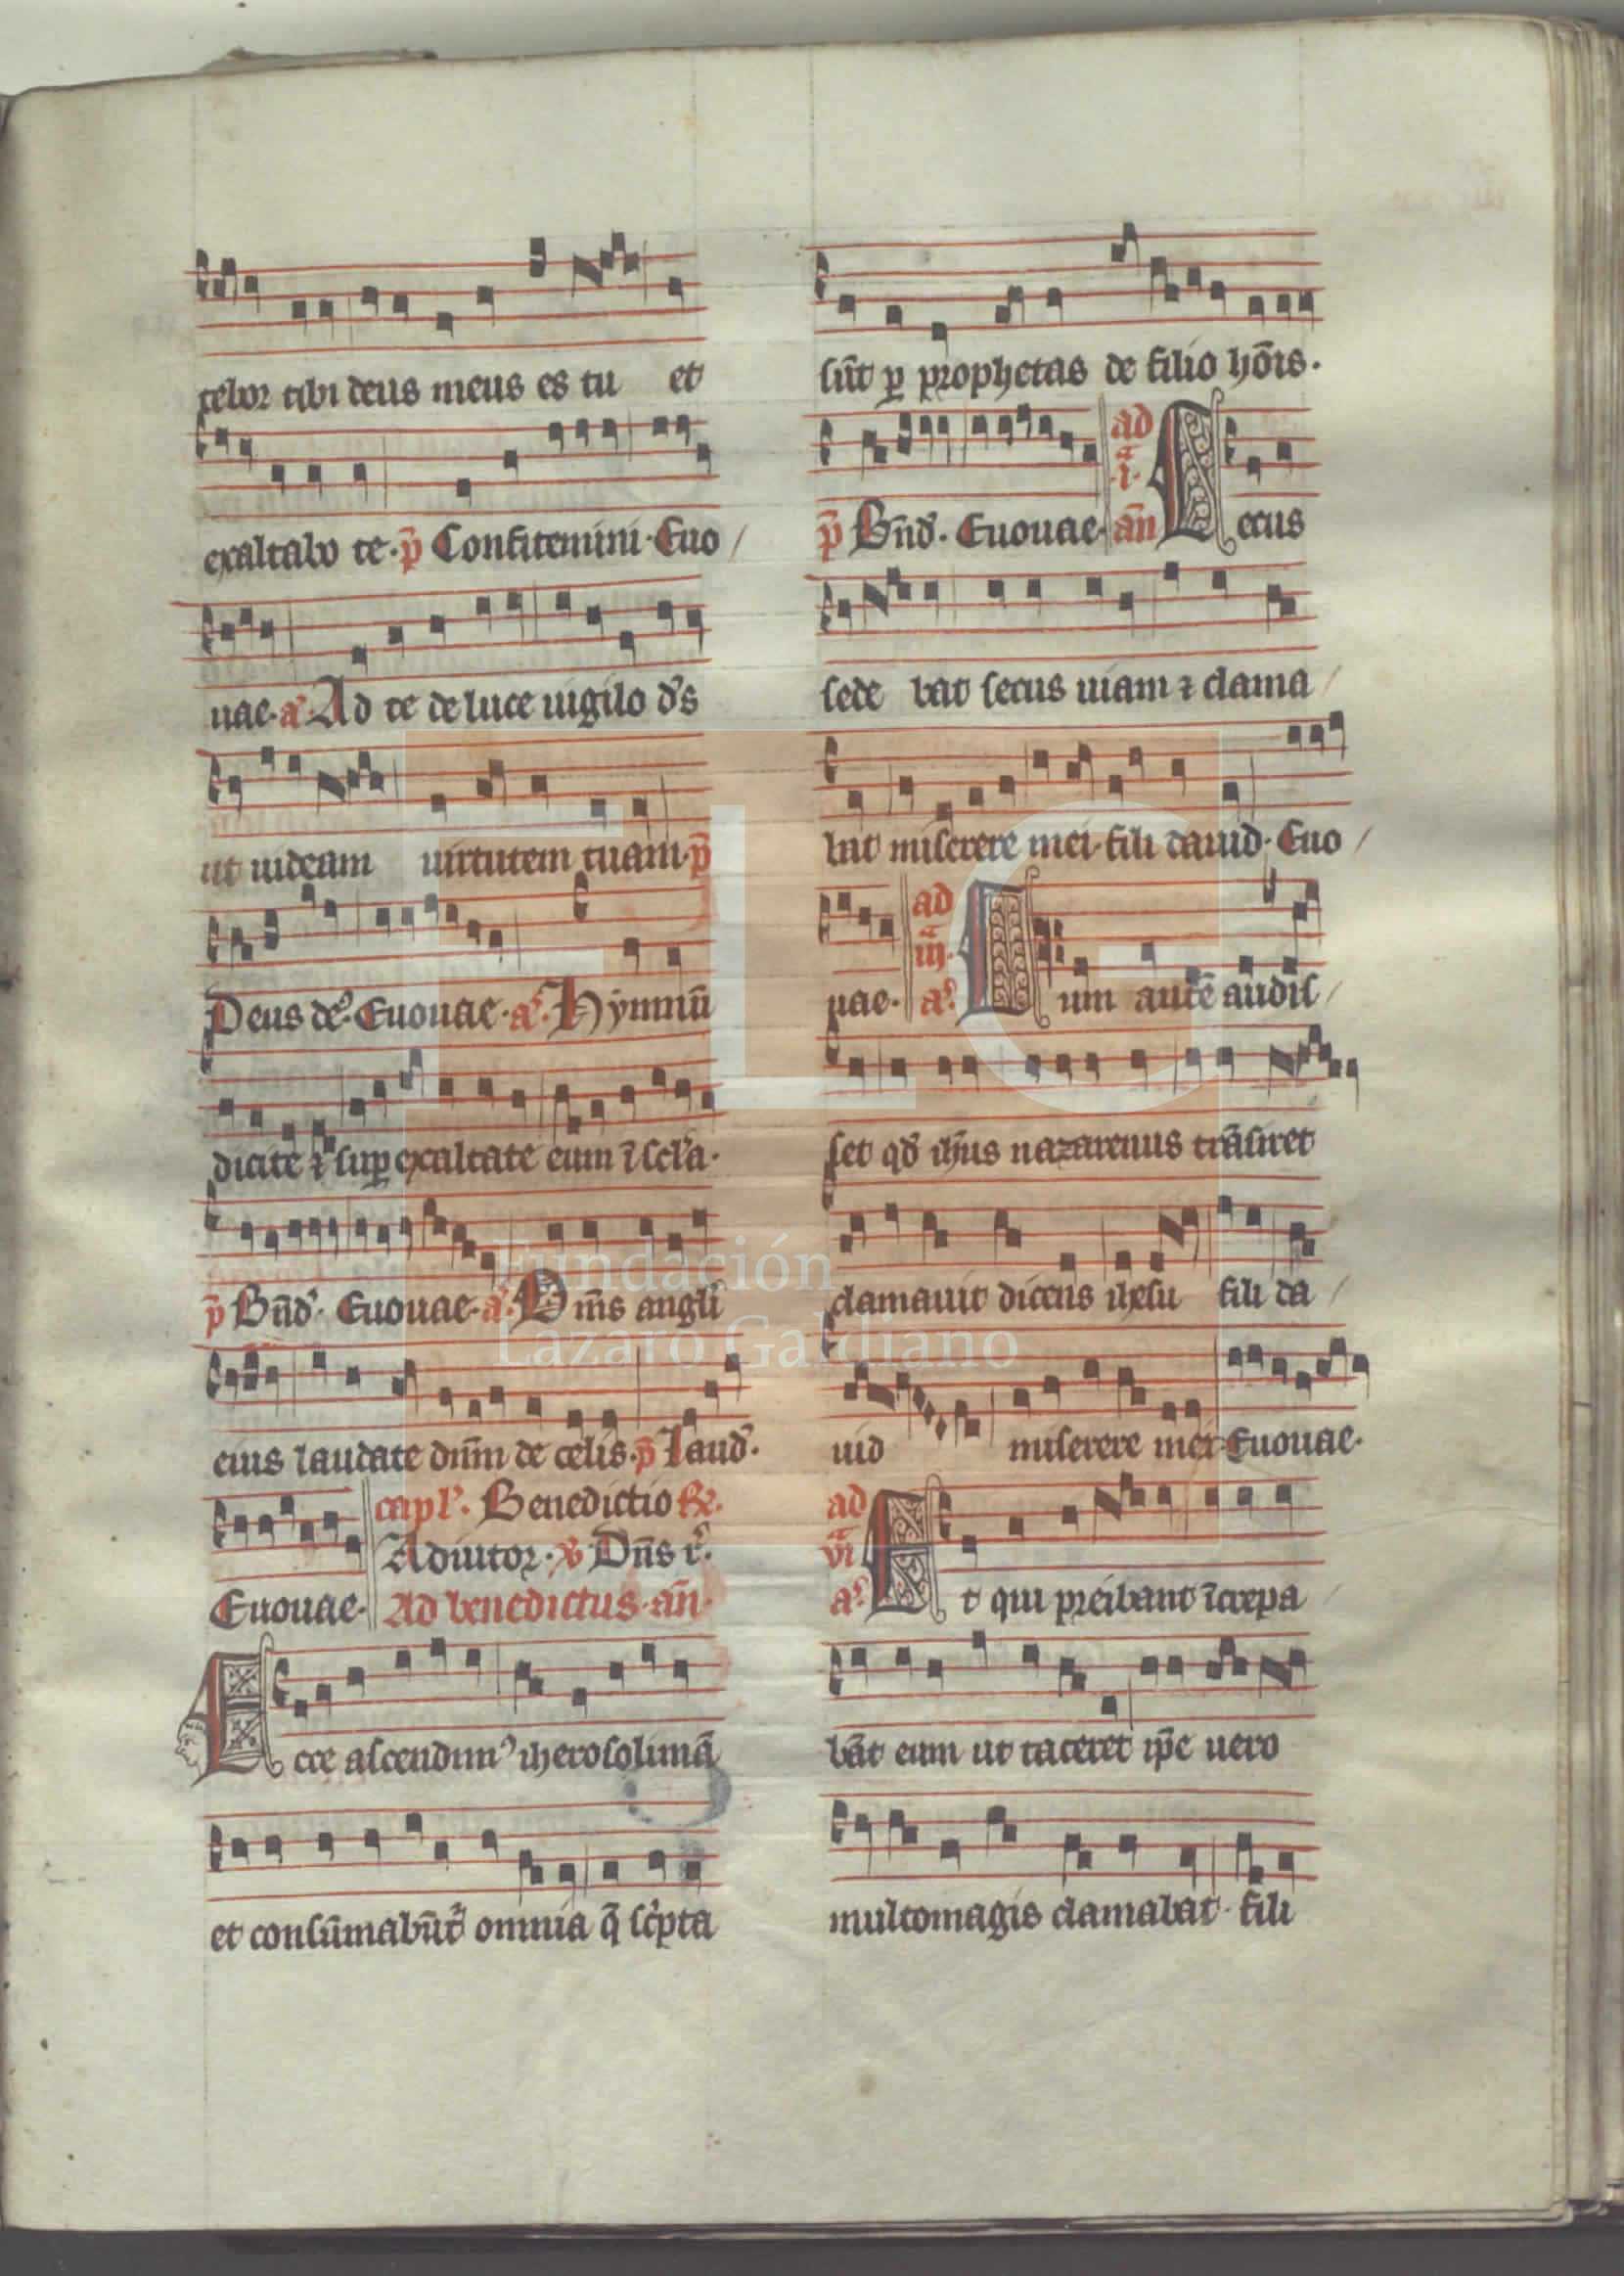 tebor tibi deus meus es tu et
exaltabo te. p̄ Confitemini. Euo
uae. a͛. Ad te de luce uigilo d͛s
ut uideam uirtutem tuam. p̄
Deus de͛. Euouae. a͛. Hỳmnū
dicite ⁊ suꝑ exaltate eum ī scl͛a.
p̄ Bn̄d͛. Euouae. a͛. Om̄s angl̄i
eius laudate dn̄m de celis. p̄ Laud͛.
capl͛. Benedictio ℟.
Adiutor. ℣ Dn̄s r͛.
Euouae. Ad benedictus. an̄.
Ecce ascendim᷒ iherosolimā
et consūmabūt͛ omnia q̄ sc͛pta
sūt ꝑ prophetas de filio hōis.
p̄ Bn̄d͛. Euouae. ad .i. an̄ Cecus
sede bat secus uiam ⁊ clama
bat miserere mei. fili dauid. Euo
uae. ad iii. a͛. Cum autē audis
set qd̄ ih̄us nazarenus trāsiret
clamauit dicens ihesu fili da
uid miserere mei. Euouae.
ad vi a͛. Et qui preibant īcrepa
bāt eum ut taceret ip̄e uero
multomagis clamabat. fili
FLG
Fundación
Lázaro Galdiano